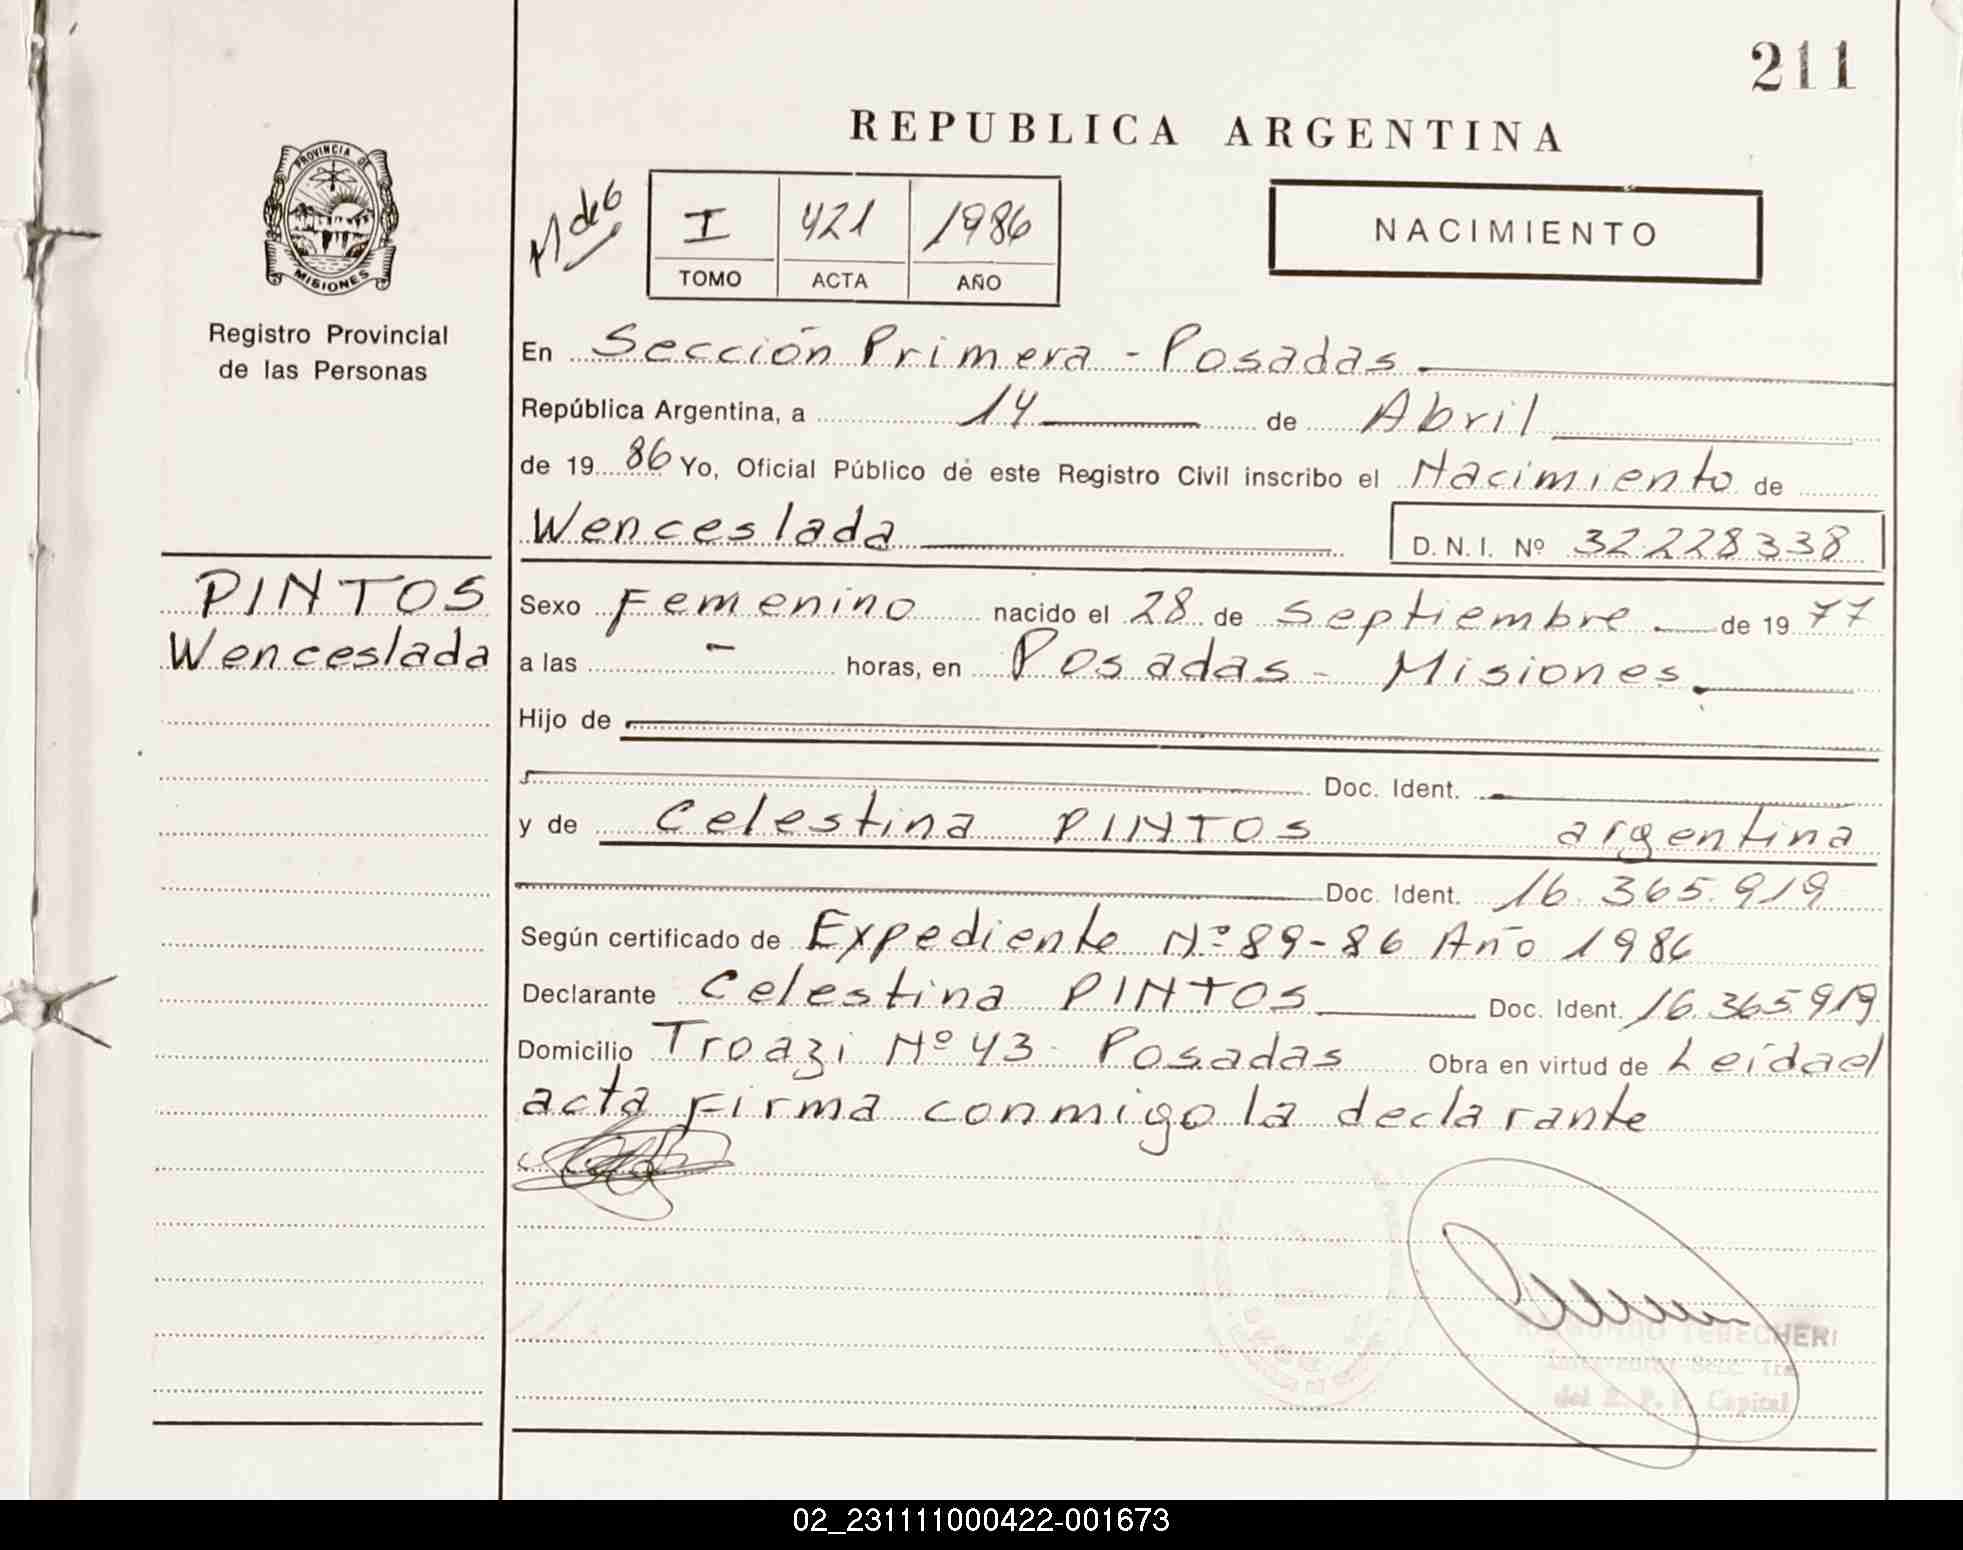 211
REPUBLICA ARGENTINA
PROVINCIA DE
MISIONES
Registro Provincial
de las Personas
M de 6
I 421 1986
TOMO ACTA AÑO
NACIMIENTO
En Sección Primera - Posadas
República Argentina, a 14 de Abril
de 1986 Yo, Oficial Público de este Registro Civil inscribo el Nacimiento de
Wenceslada D. N. I. Nº 32228338
PINTOS
Wenceslada
Sexo Femenino nacido el 28 de Septiembre de 1977
a las - horas, en Posadas - Misiones.
Hijo de
Doc. Ident.
y de Celestina PINTOS argentina
Doc. Ident. 16.365.919
Según certificado de Expediente Nº 89-86 Año 1986
Declarante Celestina PINTOS Doc. Ident. 16.365.919
Domicilio Troazi Nº 43 - Posadas Obra en virtud de Leída el
acta firma conmigo la declarante
TERECHERI
del R. P. P. Capital
02_231111000422-001673